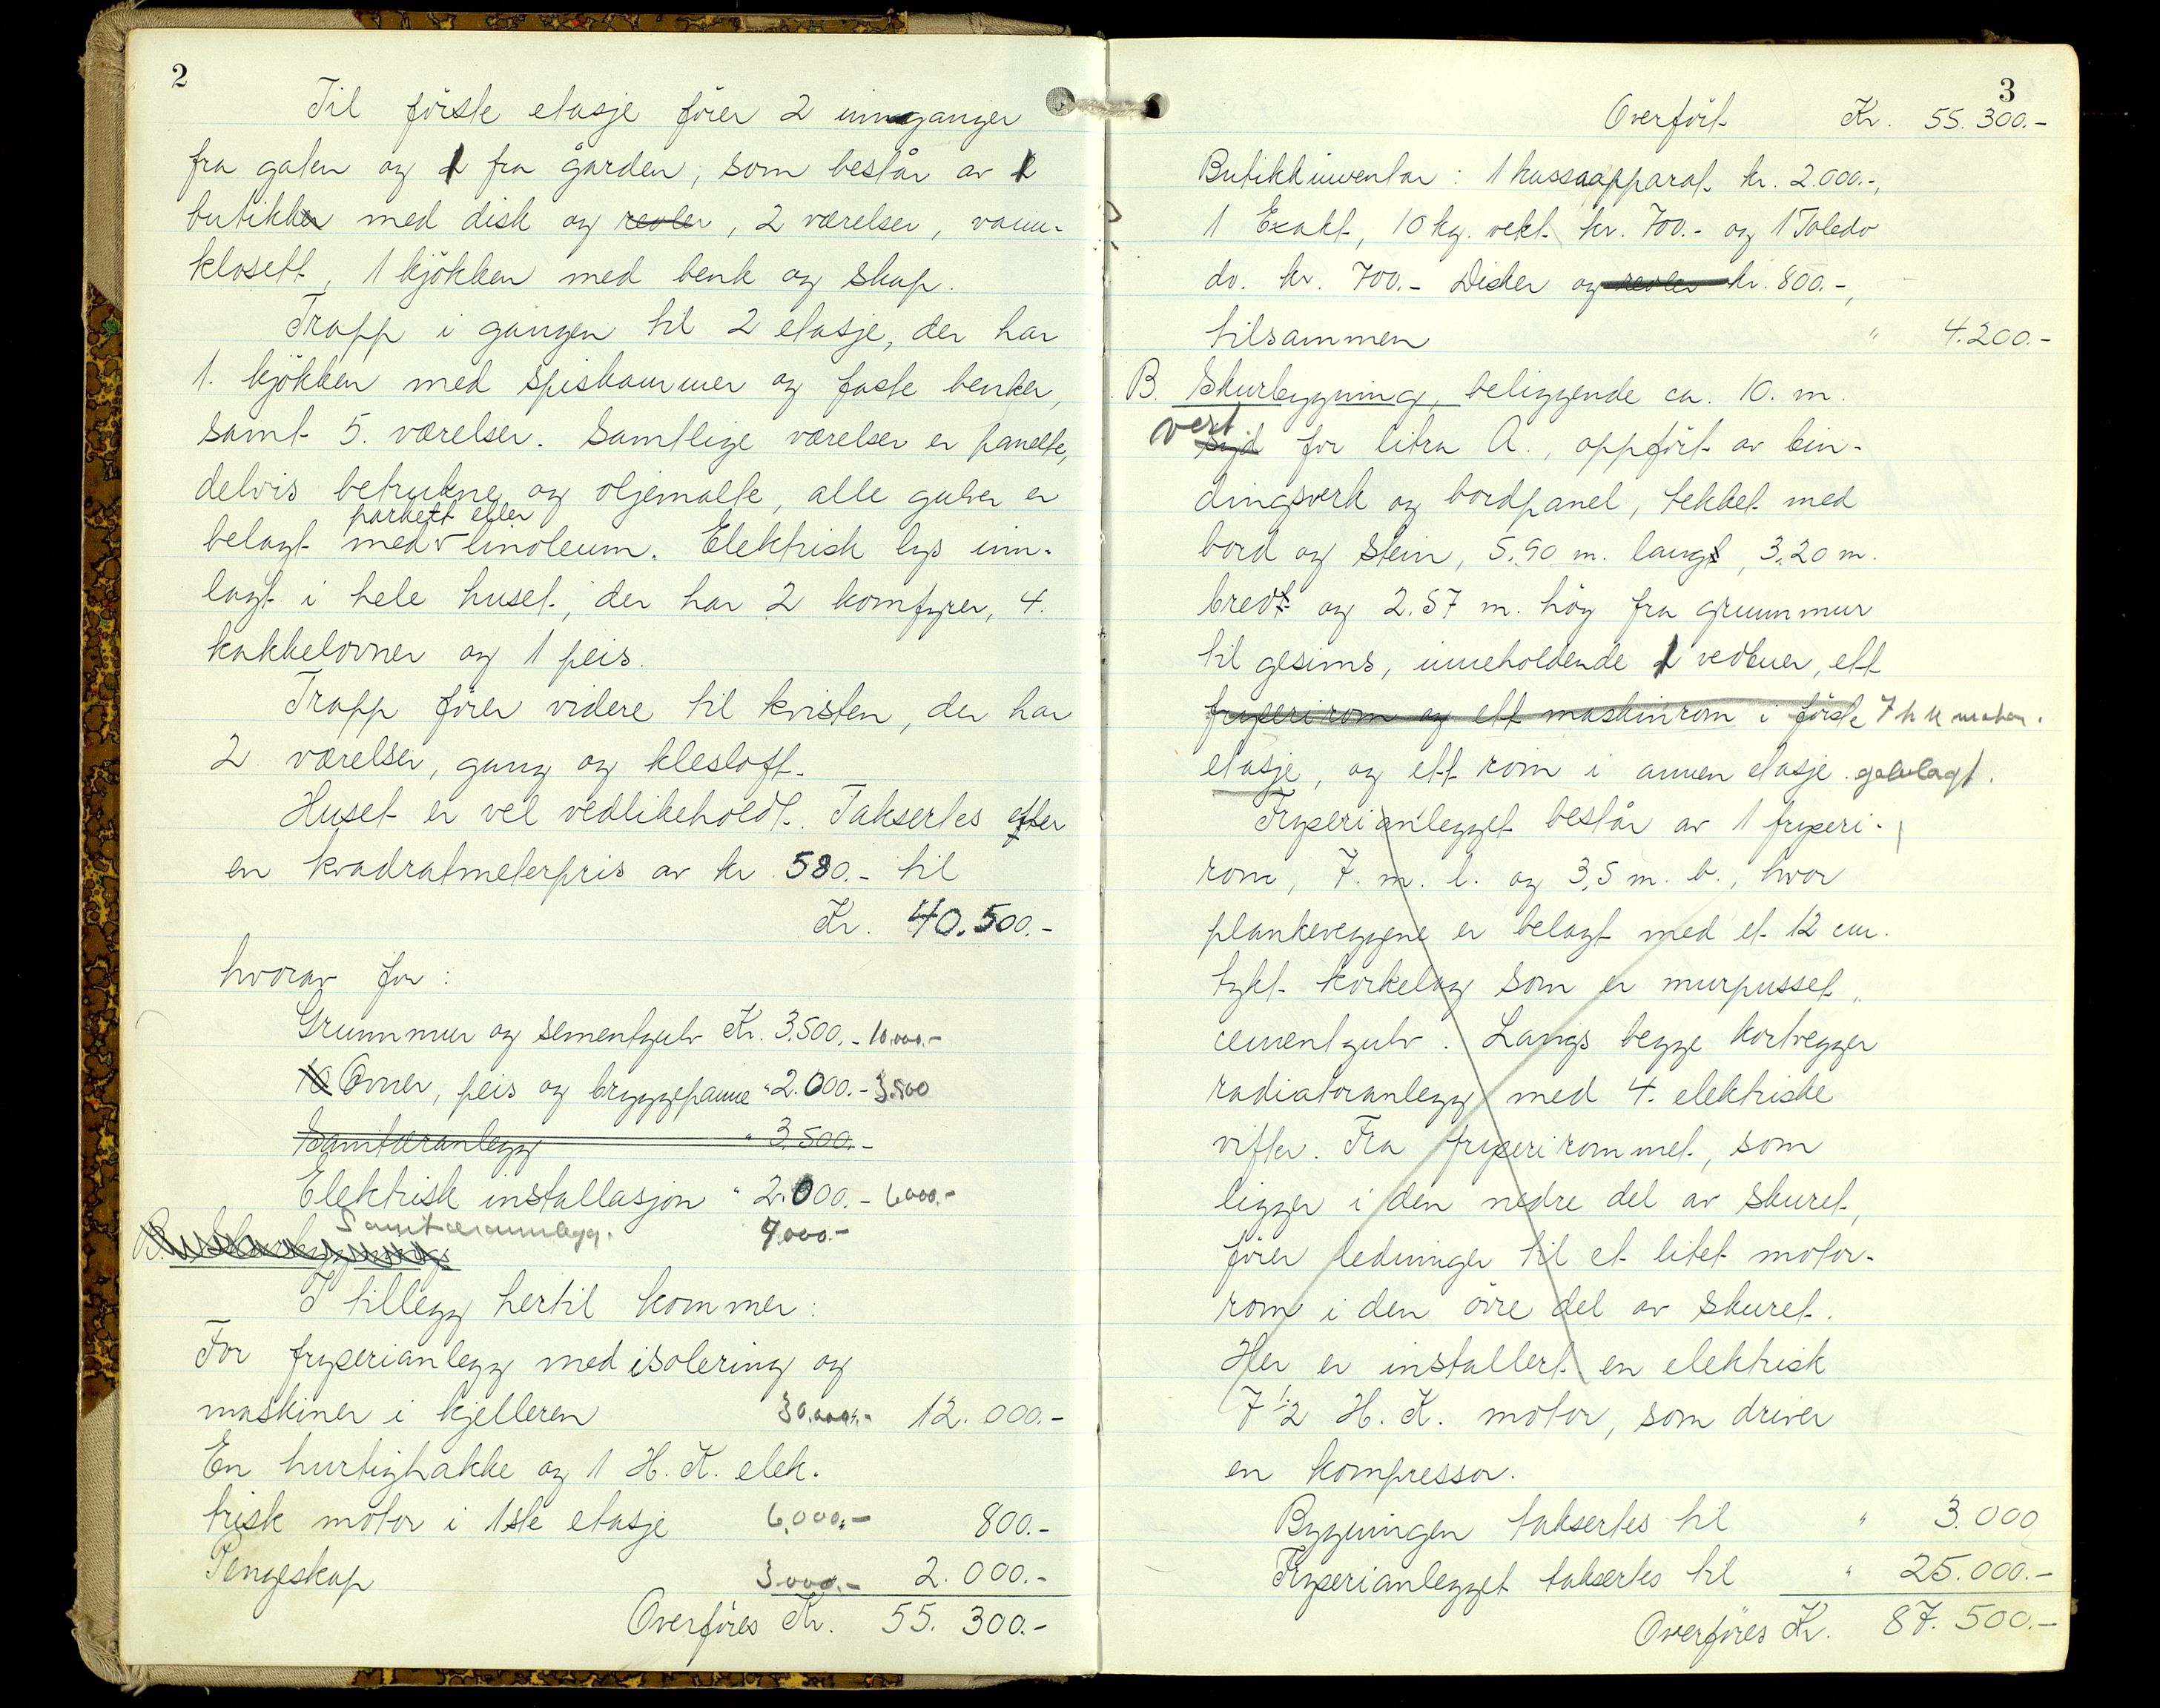 2
Til förste etasje förer 2 innganger
fra gaten og 1 fra gården, som består av 1
butikker med disk og reoler, 2 værelser, vann-
klosett, 1 kjökken med benk og skap.
Trapp i gangen til 2 etasje, der har
1. kjökken med spiskammer og faste benker,
samt 5. værelser. Samtlige værelser er panelte,
delvis betrukne og oljemalte, alle gulver er
parkett eller
belagt med linoleum. Elektrisk lys inn-
lagt i hele huset, der har 2 komfyrer, 4.
kakkelovner og 1 peis.
Trapp förer videre til kvisten, der har
2 værelser, gang og klesloft.
Huset er vel vedlikeholdt. Taksertes efter
en kvadratmeterpris av kr. 580.- til
Kr. 40.500.-
hvorav for:
Grunnmur og sementgulv Kr. 3.500.- 10.000.-
10 Ovner, peis og bryggepanne " 2.000.- 3.500
Sanitæranlegg " 3.500.-
Elektrisk installasjon " 2.000.- 6000.-
Sanitæranlegg. 9.000.-
B. Skurbygning
I tillegg hertil kommer:
For fryserianlegg med isolering og
maskiner i kjelleren 30.000.- 12.000.-
En hurtighakke og 1 H.K. elek-
trisk motor i 1ste etasje 6.000.- 800.-
Pengeskap 3000.- 2.000.-
Overföres Kr. 55.300.-
3
Overfört Kr. 55.300.-
Butikkinventar: 1 kassaapparat kr. 2.000.-,
1 Exakt, 10 kg. vekt kr. 700.- og 1 Toledo
do. kr. 700.- Disker og reoler kr. 800.-,
tilsammen " 4.200.-
B. Skurbygning, beliggende ca. 10. m.
vest
syd for litra A., oppfört av bin-
dingsverk og bordpanel, tekket med
bord og stein, 5.90 m. langt, 3.20 m.
bredt og 2.57 m. höy fra grunnmur
til gesims, inneholdende 1 vedbuer, ett
fryserirom og ett maskinrom i förste 7 h k
etasje, og ett rom i annen etasje.
Fryserianlegget består av 1 fryseri-
rom, 7. m. l. og 3,5 m. b., hvor
plankeveggene er belagt med et 12 cm.
tykt korkelag som er murpusset,
cementgulv. Langs begge kortvegger
radiatoranlegg med 4. elektriske
vifter. Fra fryserirommet, som
ligger i den nedre del av skuret,
förer ledninger til et litet motor-
rom i den övre del av skuret.
Her er installert en elektrisk
7 1/2 H.K. motor, som driver
en kompressor.
Bygningen taksertes til " 3.000
Fryserianlegget taksertes til " 25.000.-
Overföres Kr. 87.500.-